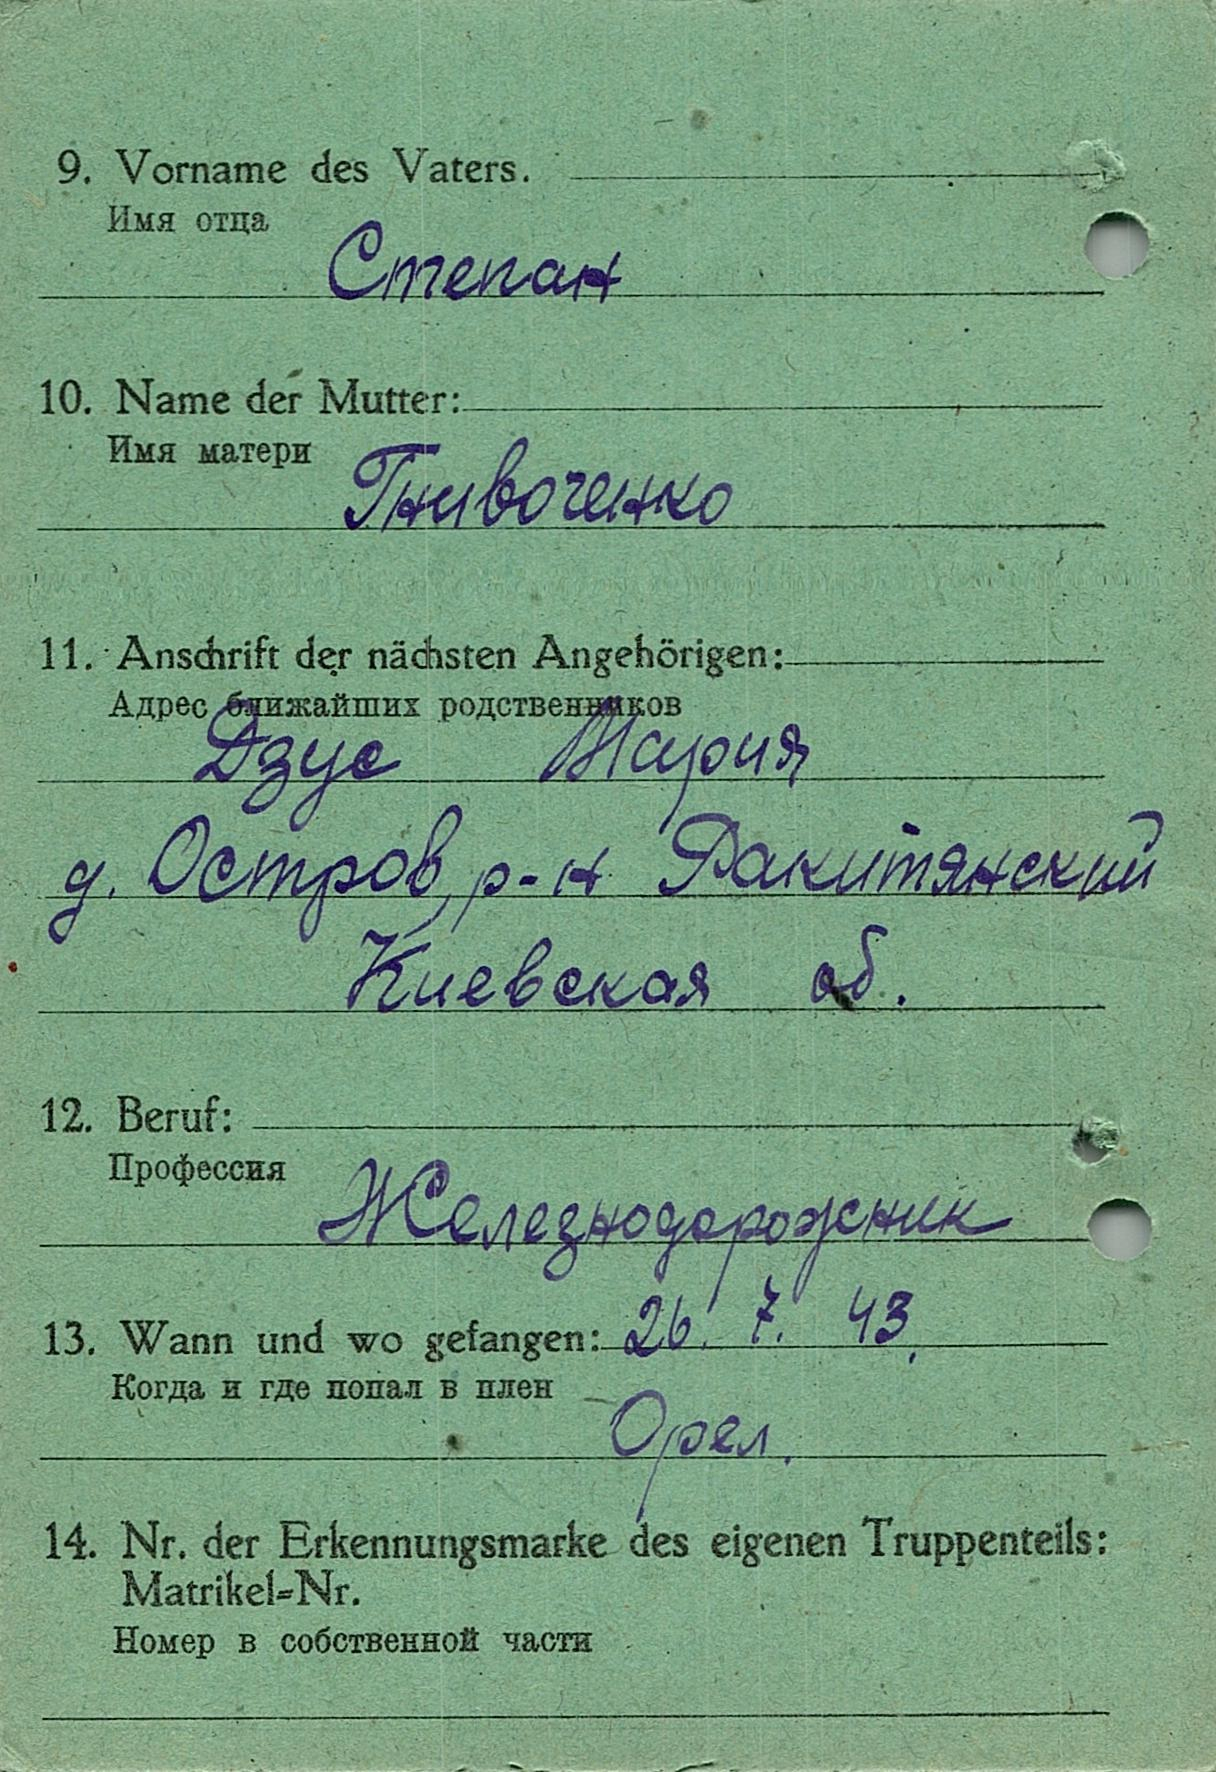 9. Vorname des Vaters.
Имя отца
Степан
10. Name der Mutter:
Имя матери
Гнивоченко
11. Anschrift der nächsten Angehörigen:
Адрес ближайших родственников
Дзус Мария
д. Остров, р-н Ракитянский
Киевская об.
12. Beruf:
Профессия
Железнодорожник
13. Wann und wo gefangen: 26. 7. 43.
Когда и где попал в плен
Орел.
14. Nr. der Erkennungsmarke des eigenen Truppenteils:
Matrikel-Nr.
Номер в собственной части